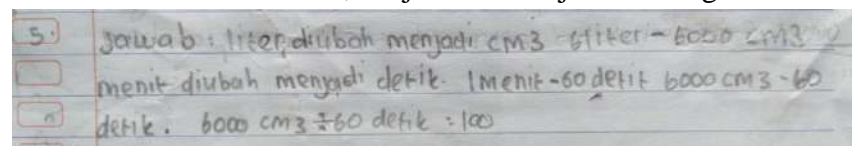 5. Jawab : liter diubah menjadi cm3 6liter - 6000 cm3
menit diubah menjadi detik. 1 menit - 60 detik 6000 cm3 - 60
detik. 6000 cm3 ÷ 60 detik = 100